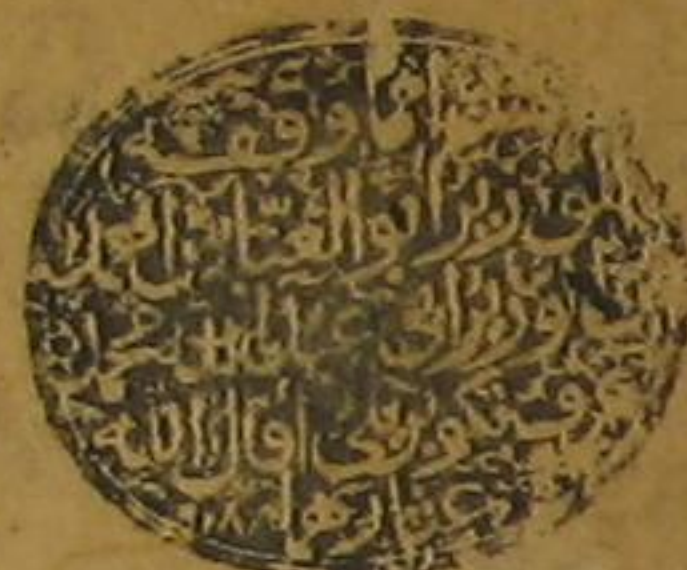 مما وقفه
الوزير ابو العباس احمد
بن الوزير ابي عبد الله محمد
عرف بكوبريلي اقال الله
عثارهما